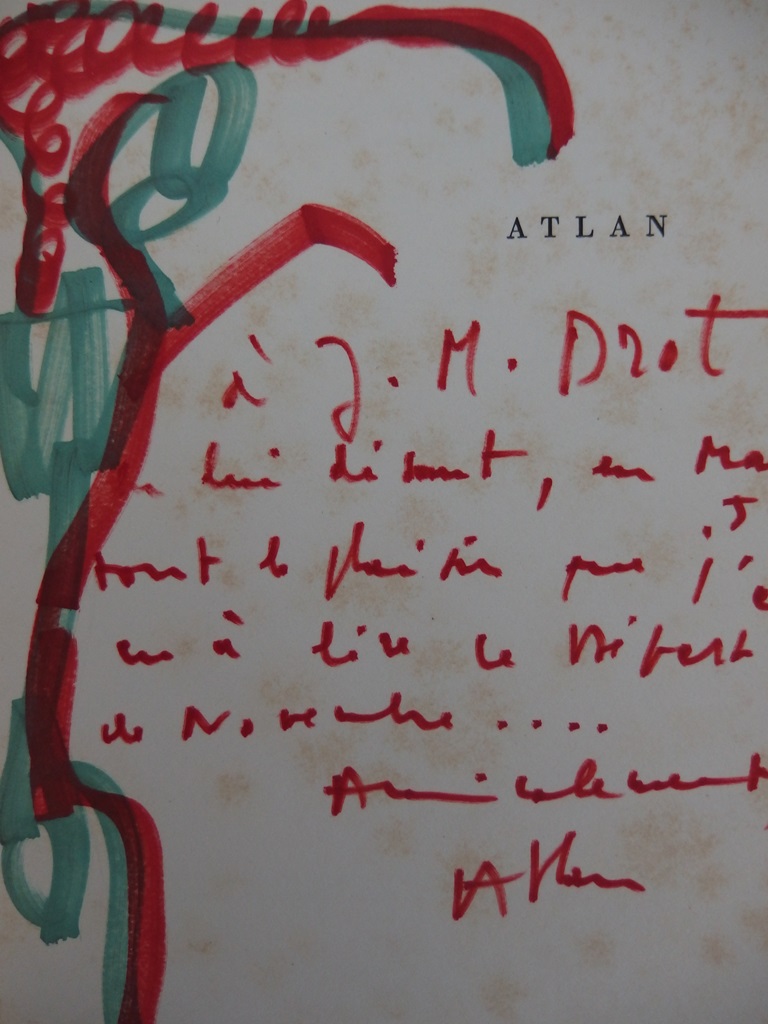 ATLAN
à J. M. Drot
lui disant, en Ma
tout le plaisir que j'
eu à lire ce Départ
de Novembre ....
Amicalement
Atlan